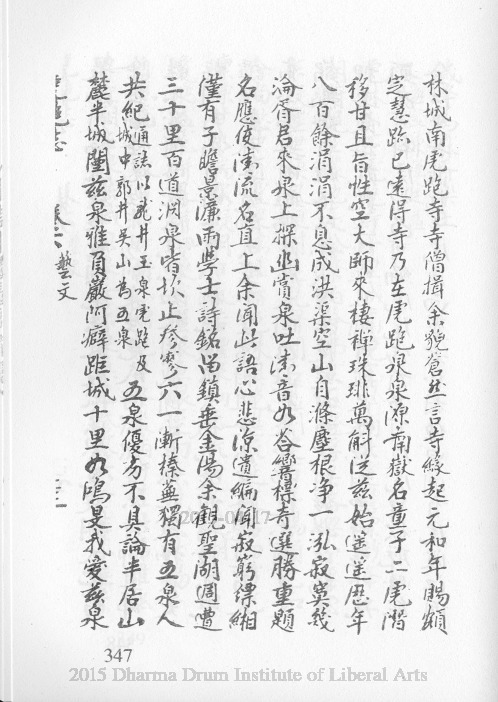 林城南虎跑寺寺僧揖余貌蒼然言寺緣起元和年賜額
定慧跡已遠得寺乃在虎跑泉泉源南嶽名童子二虎潛
移甘且旨性空大師來棲禪珠琲萬斛從茲始遥遥歷年
八百餘涓涓不息成洪渠空山自滌塵根净一泓寂寞幾
淪胥君來泉上探幽賞泉吐清音如答響標奇選勝重題
名應使清流名直上余聞此語心悲涼遺編闻寂躬縹緗
僅有子瞻景濂兩學士詩銘留鎮垂金陽余觀聖湖週遭
三十里百道淵泉皆坎止參寥六一漸榛蕪獨有五泉人
共紀通誌以龍井玉泉虎跑及城中郭井吳山為五泉五泉優劣不具論半居山
麓半城闉茲泉雅負嚴阿癖距城十里如鳴旻我愛茲泉
虎跑志 藝文
347
2015 Dharma Drum Institute of Liberal Arts